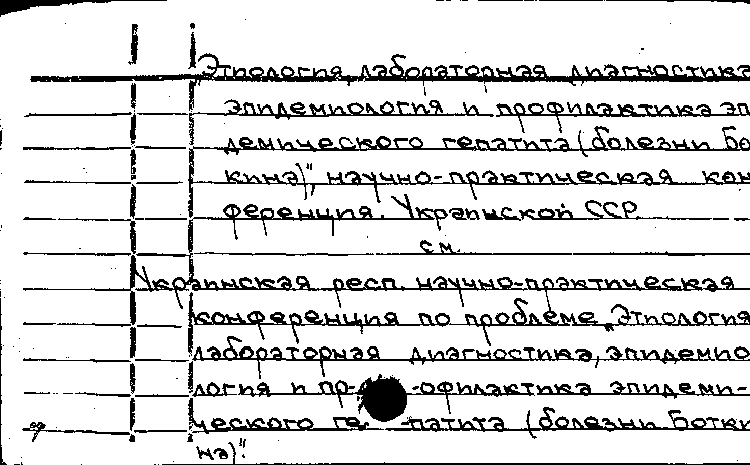 „Этиология, лабораторная диагностика
эпидемиология и профилактика эпи
демического гепатита (болезни Бо
кина)", научно-практическая кон
ференция. Украинской ССР
см.
Украинская респ. научно-практическая
конференция по проблеме „Этиология
лабораторная диагностика, эпидемио
логия и пр- -офилактика эпидеми-
ческого ге- -патита (болезни Ботки
на)".